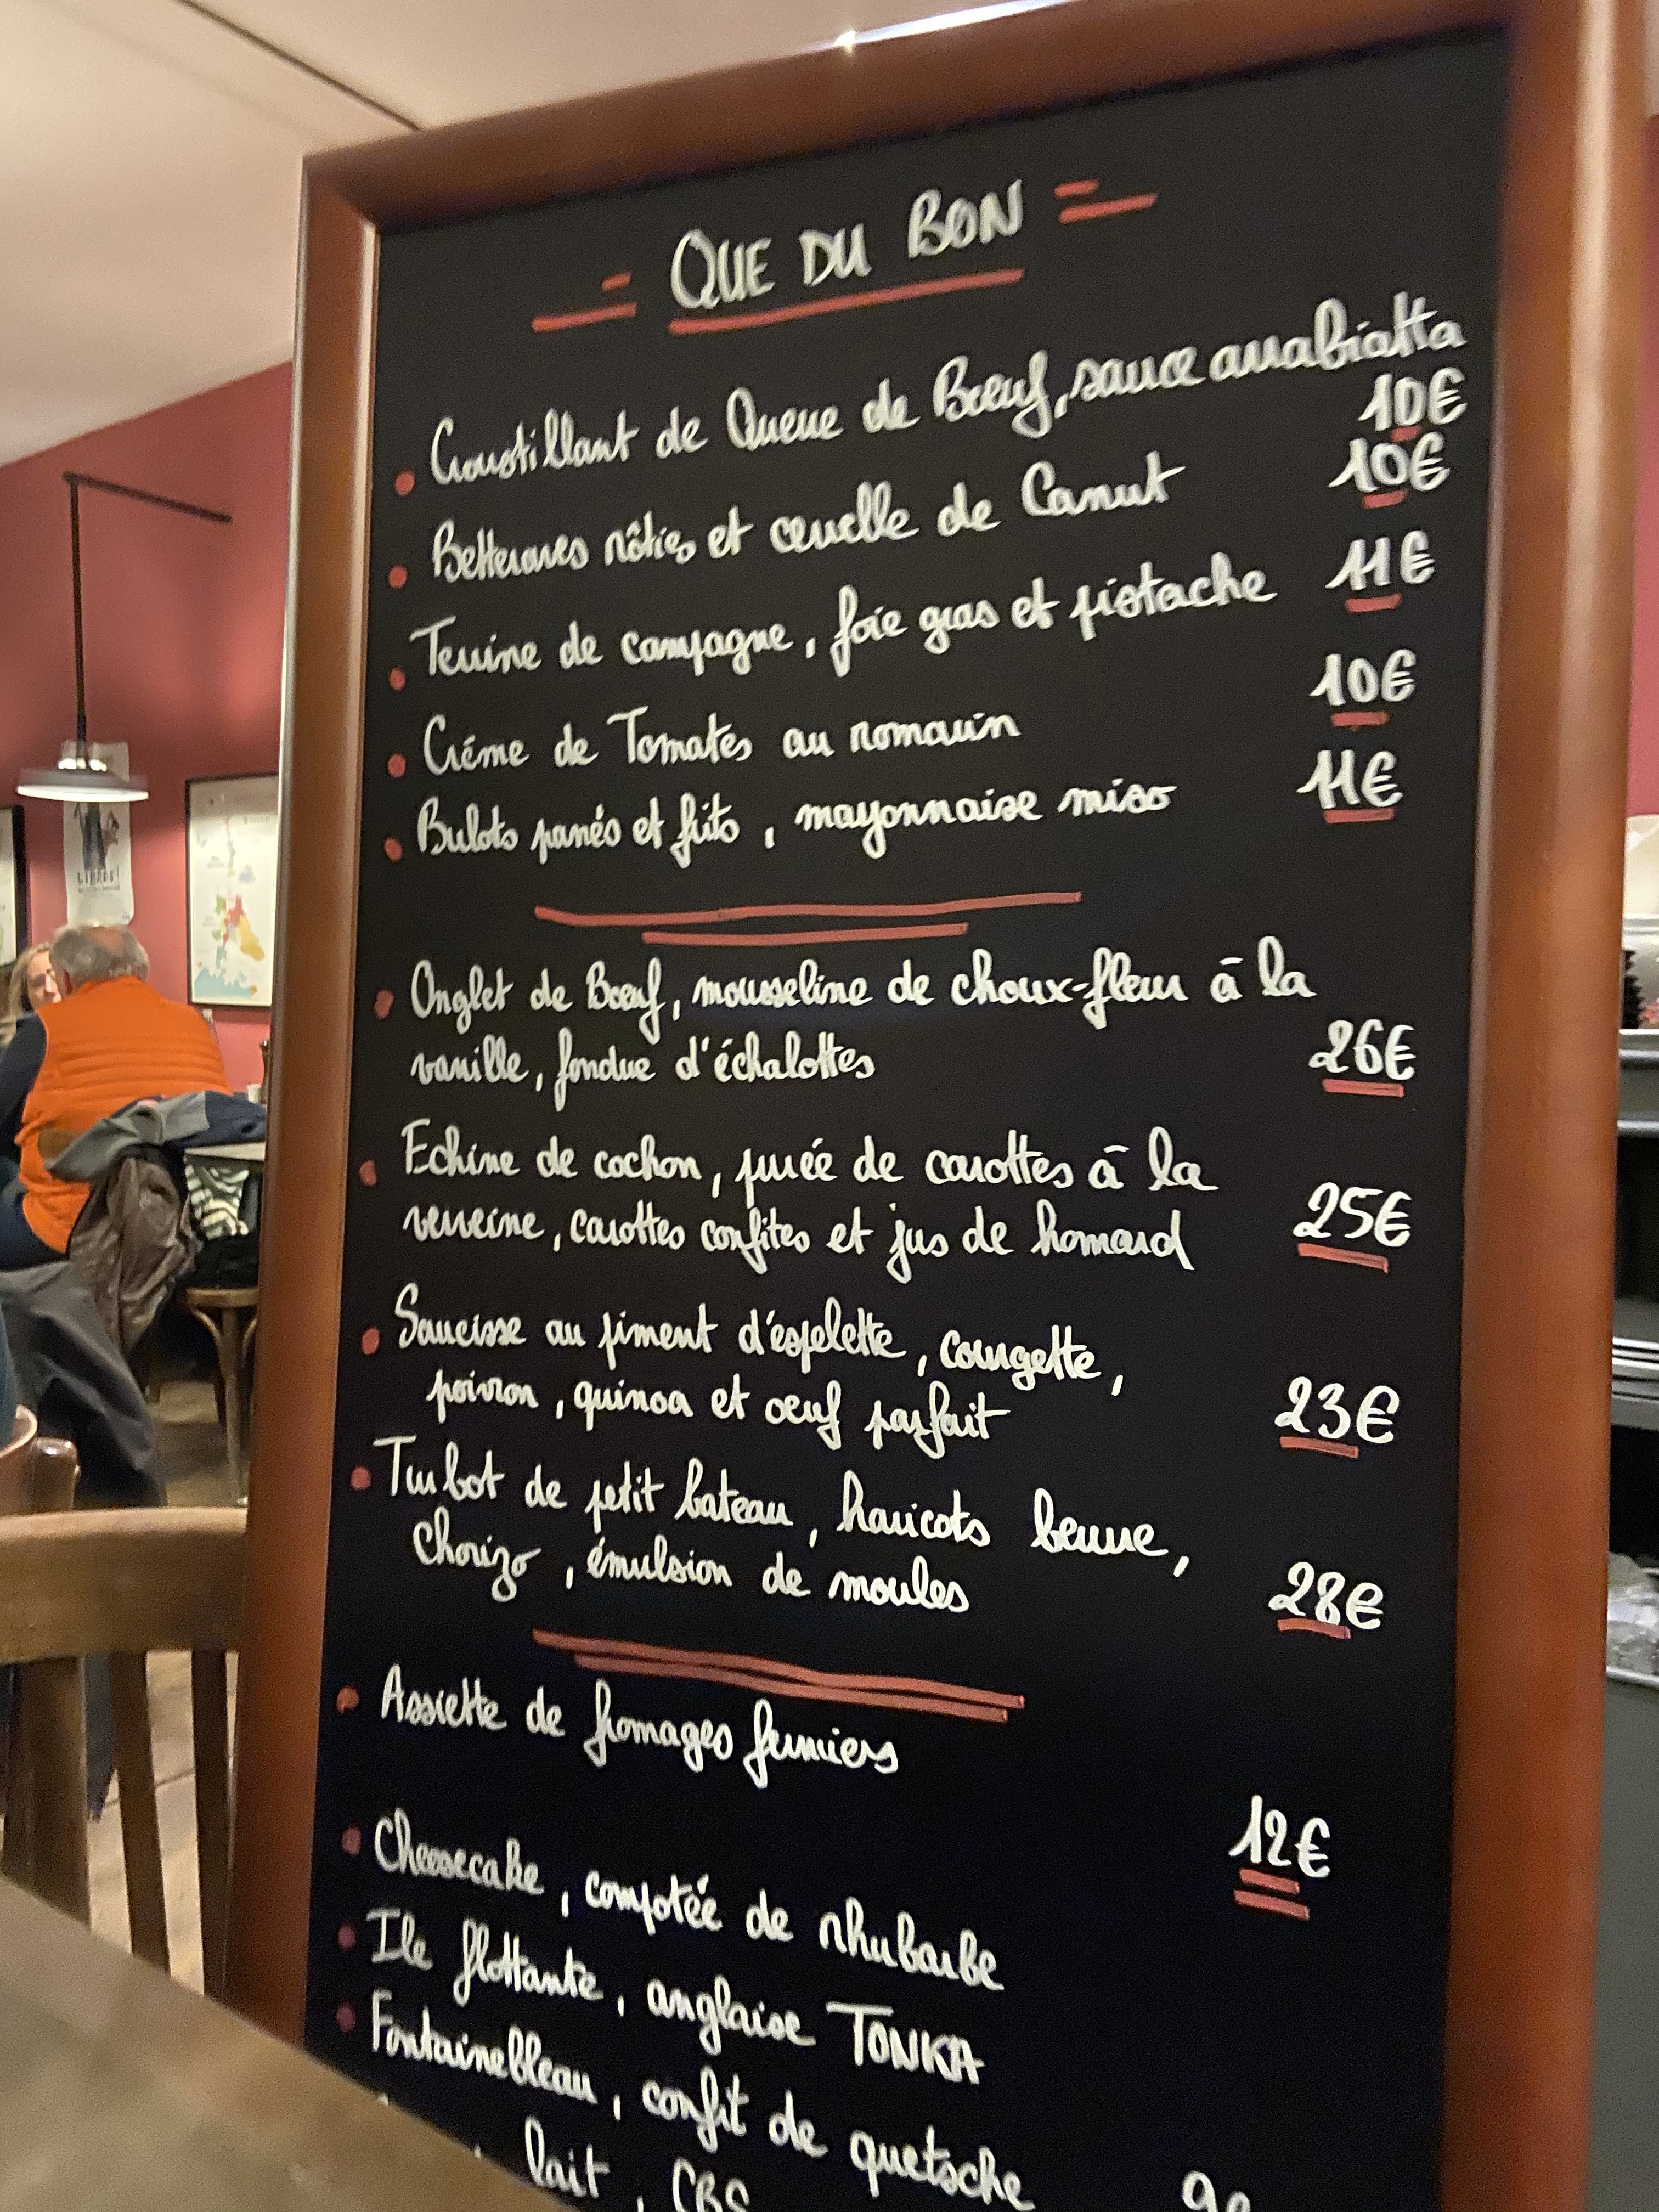 QUE DU BON
Croustillant de Queue de Bœuf, sauce arrabiatta
10€
Betteraves rôties et cervelle de Canut 10€
Terrine de campagne, foie gras et pistache 11€
Crème de Tomates au romarin 10€
Bulots panés et frits, mayonnaise miso 11€
Onglet de Bœuf, mousseline de choux-fleur à la
vanille, fondue d'échalottes 26€
Echine de cochon, purée de carottes à la
verveine, carottes confites et jus de homard 25€
Saucisse au piment d'espelette, courgette,
poivron, quinoa et oeuf parfait 23€
Turbot de petit bateau, haricots beurre,
Chorizo, émulsion de moules 28€
Assiette de fromages fermiers
12€
Cheesecake, compotée de rhubarbe
Ile flottante, anglaise TONKA
Fontainebleau, confit de quetsche
lait, CBS
LIBRES!